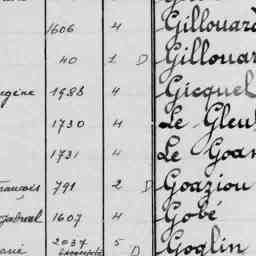 1606 4 Gillouard
40 1 D Gillouar
ugène 1988 4 Gicquel
1730 4 Le Gleu
1731 4 Le Goar
rançois 791 2 D Goaziou
1607 4 Gobé
2037 5 D Goglin